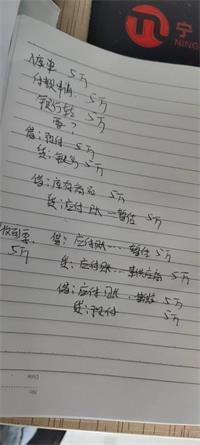 宁
NING
入库单 5万
付款申请 5万
银行转 5万
票?
借:预付 5万
贷:银行 5万
借:库存商品 5万
贷:应付账款—暂估 5万
收到票 借:应付账款…暂估 5万
5万 贷:应付账款…某供应商 5万
借:应付账款 5万
贷:预付 5万
Date
No.